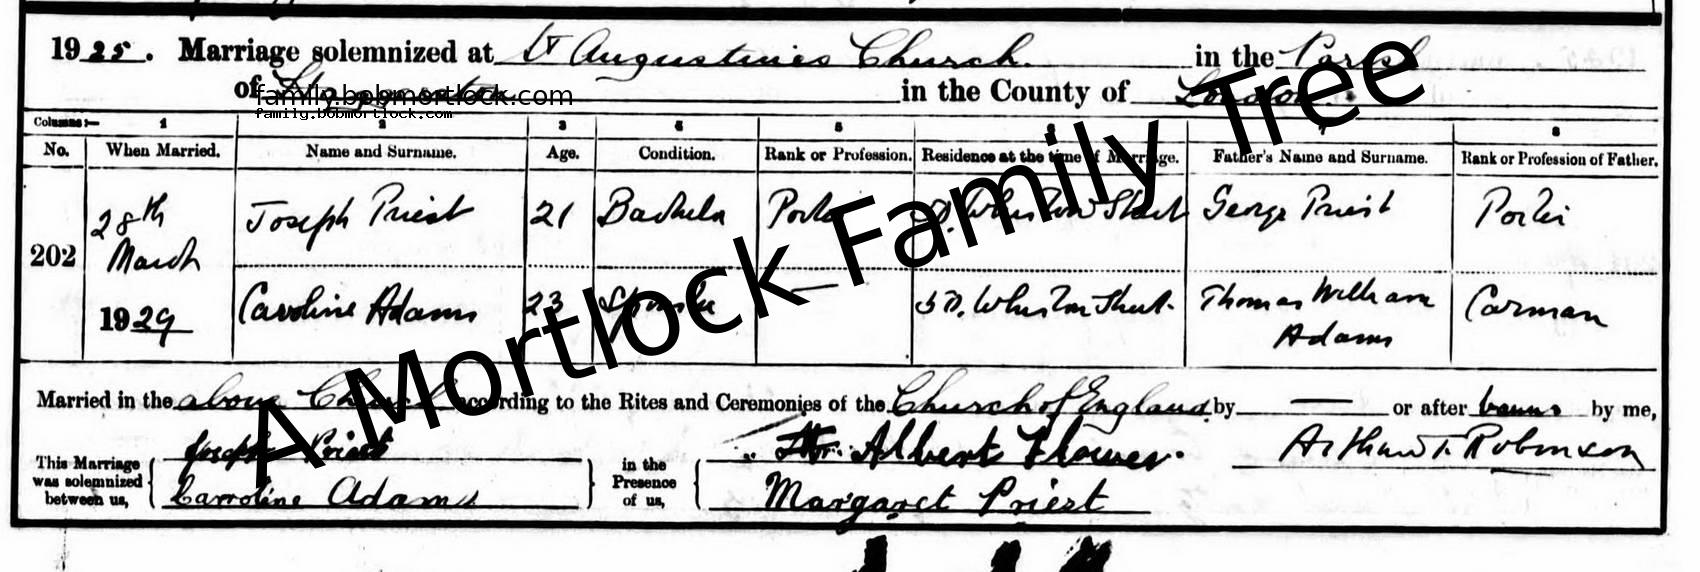 1925. Marriage solemnized at St Augustines Church. in the Parish
of in the County of London.
family.bobmortlock.com
family.bobmortlock.com
Columns:— 1 2 3 4 5 6 7 8
No. When Married. Name and Surname. Age. Condition. Rank or Profession. Residence at the time of Marriage. Father's Name and Surname. Rank or Profession of Father.
202 28th March 1929 Joseph Priest 21 Bachelor Porter Street George Priest Porter
Caroline Adams 23 Spinster — Street. Thomas William Adams Carman
Married in the above Church according to the Rites and Ceremonies of the Church of England by — or after banns by me,
This Marriage was solemnized between us, Joseph Priest Caroline Adams in the Presence of us, Albert Flower. Margaret Priest Arthur T. Robinson
A Mortlock Family Tree